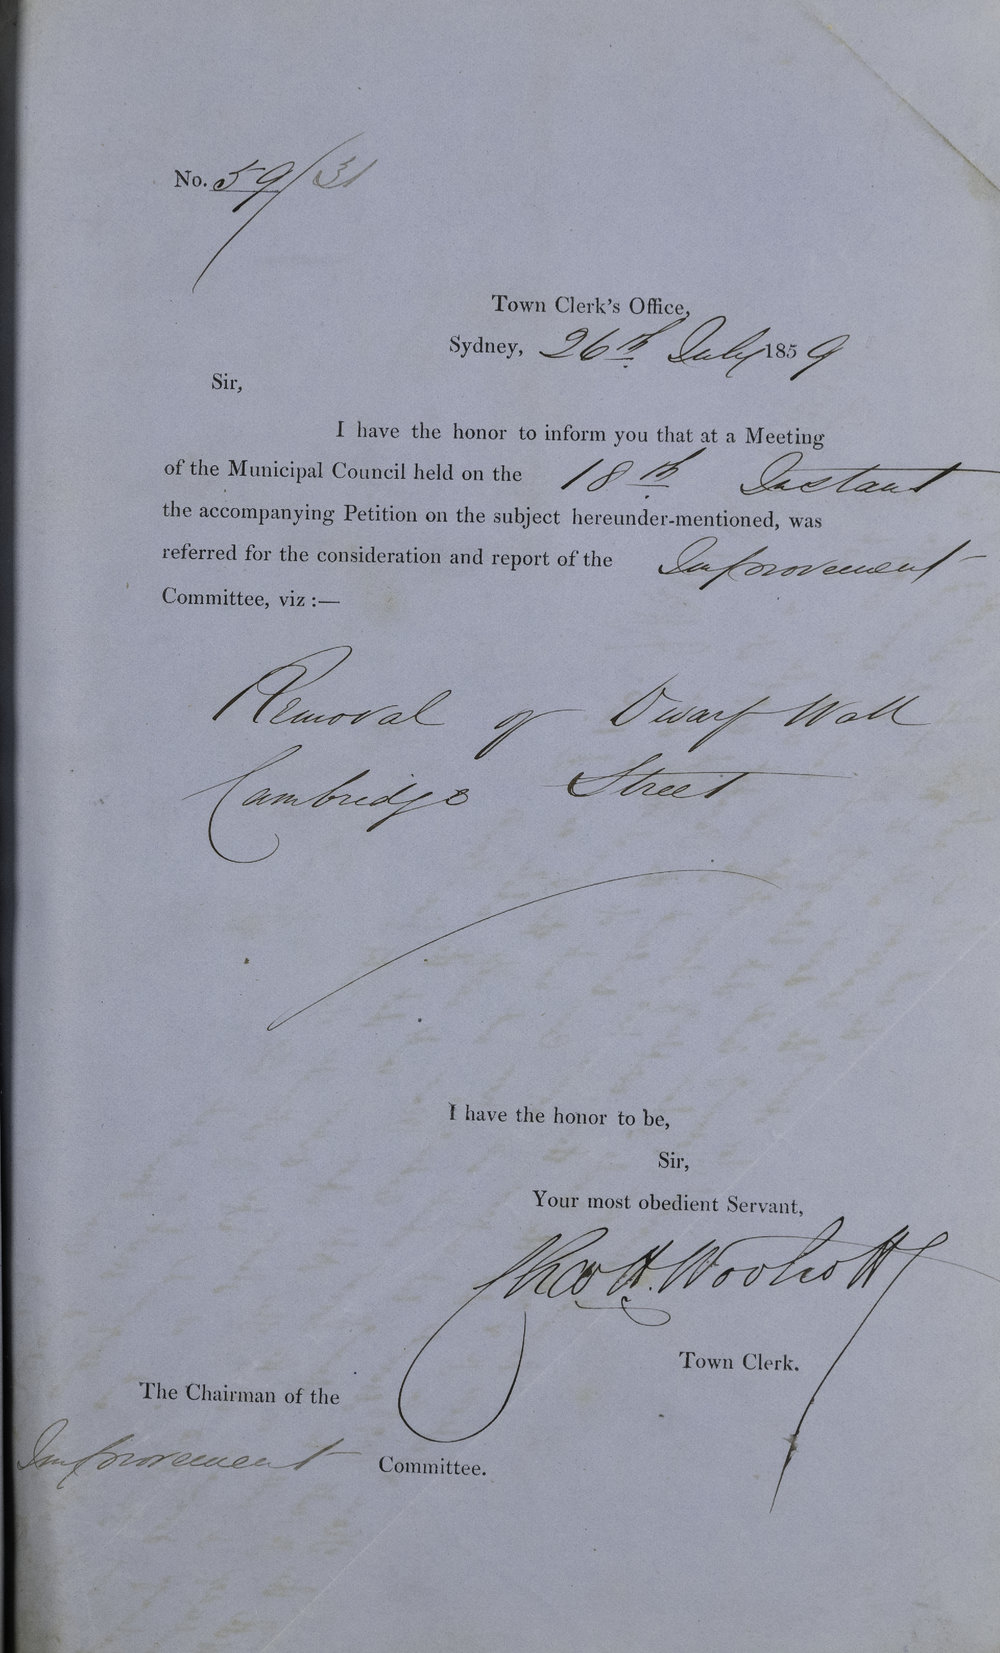 No. 59/31
Town Clerk's Office,
Sydney, 26th July 1859
Sir,
I have the honor to inform you that at a Meeting
of the Municipal Council held on the 18th Instant
the accompanying Petition on the subject hereunder-mentioned, was
referred for the consideration and report of the Improvement
Committee, viz :—
Removal of Dwarf Wall
Cambridge Street
I have the honor to be,
Sir,
Your most obedient Servant,
Chas H. Woolcott
Town Clerk.
The Chairman of the
Improvement Committee.